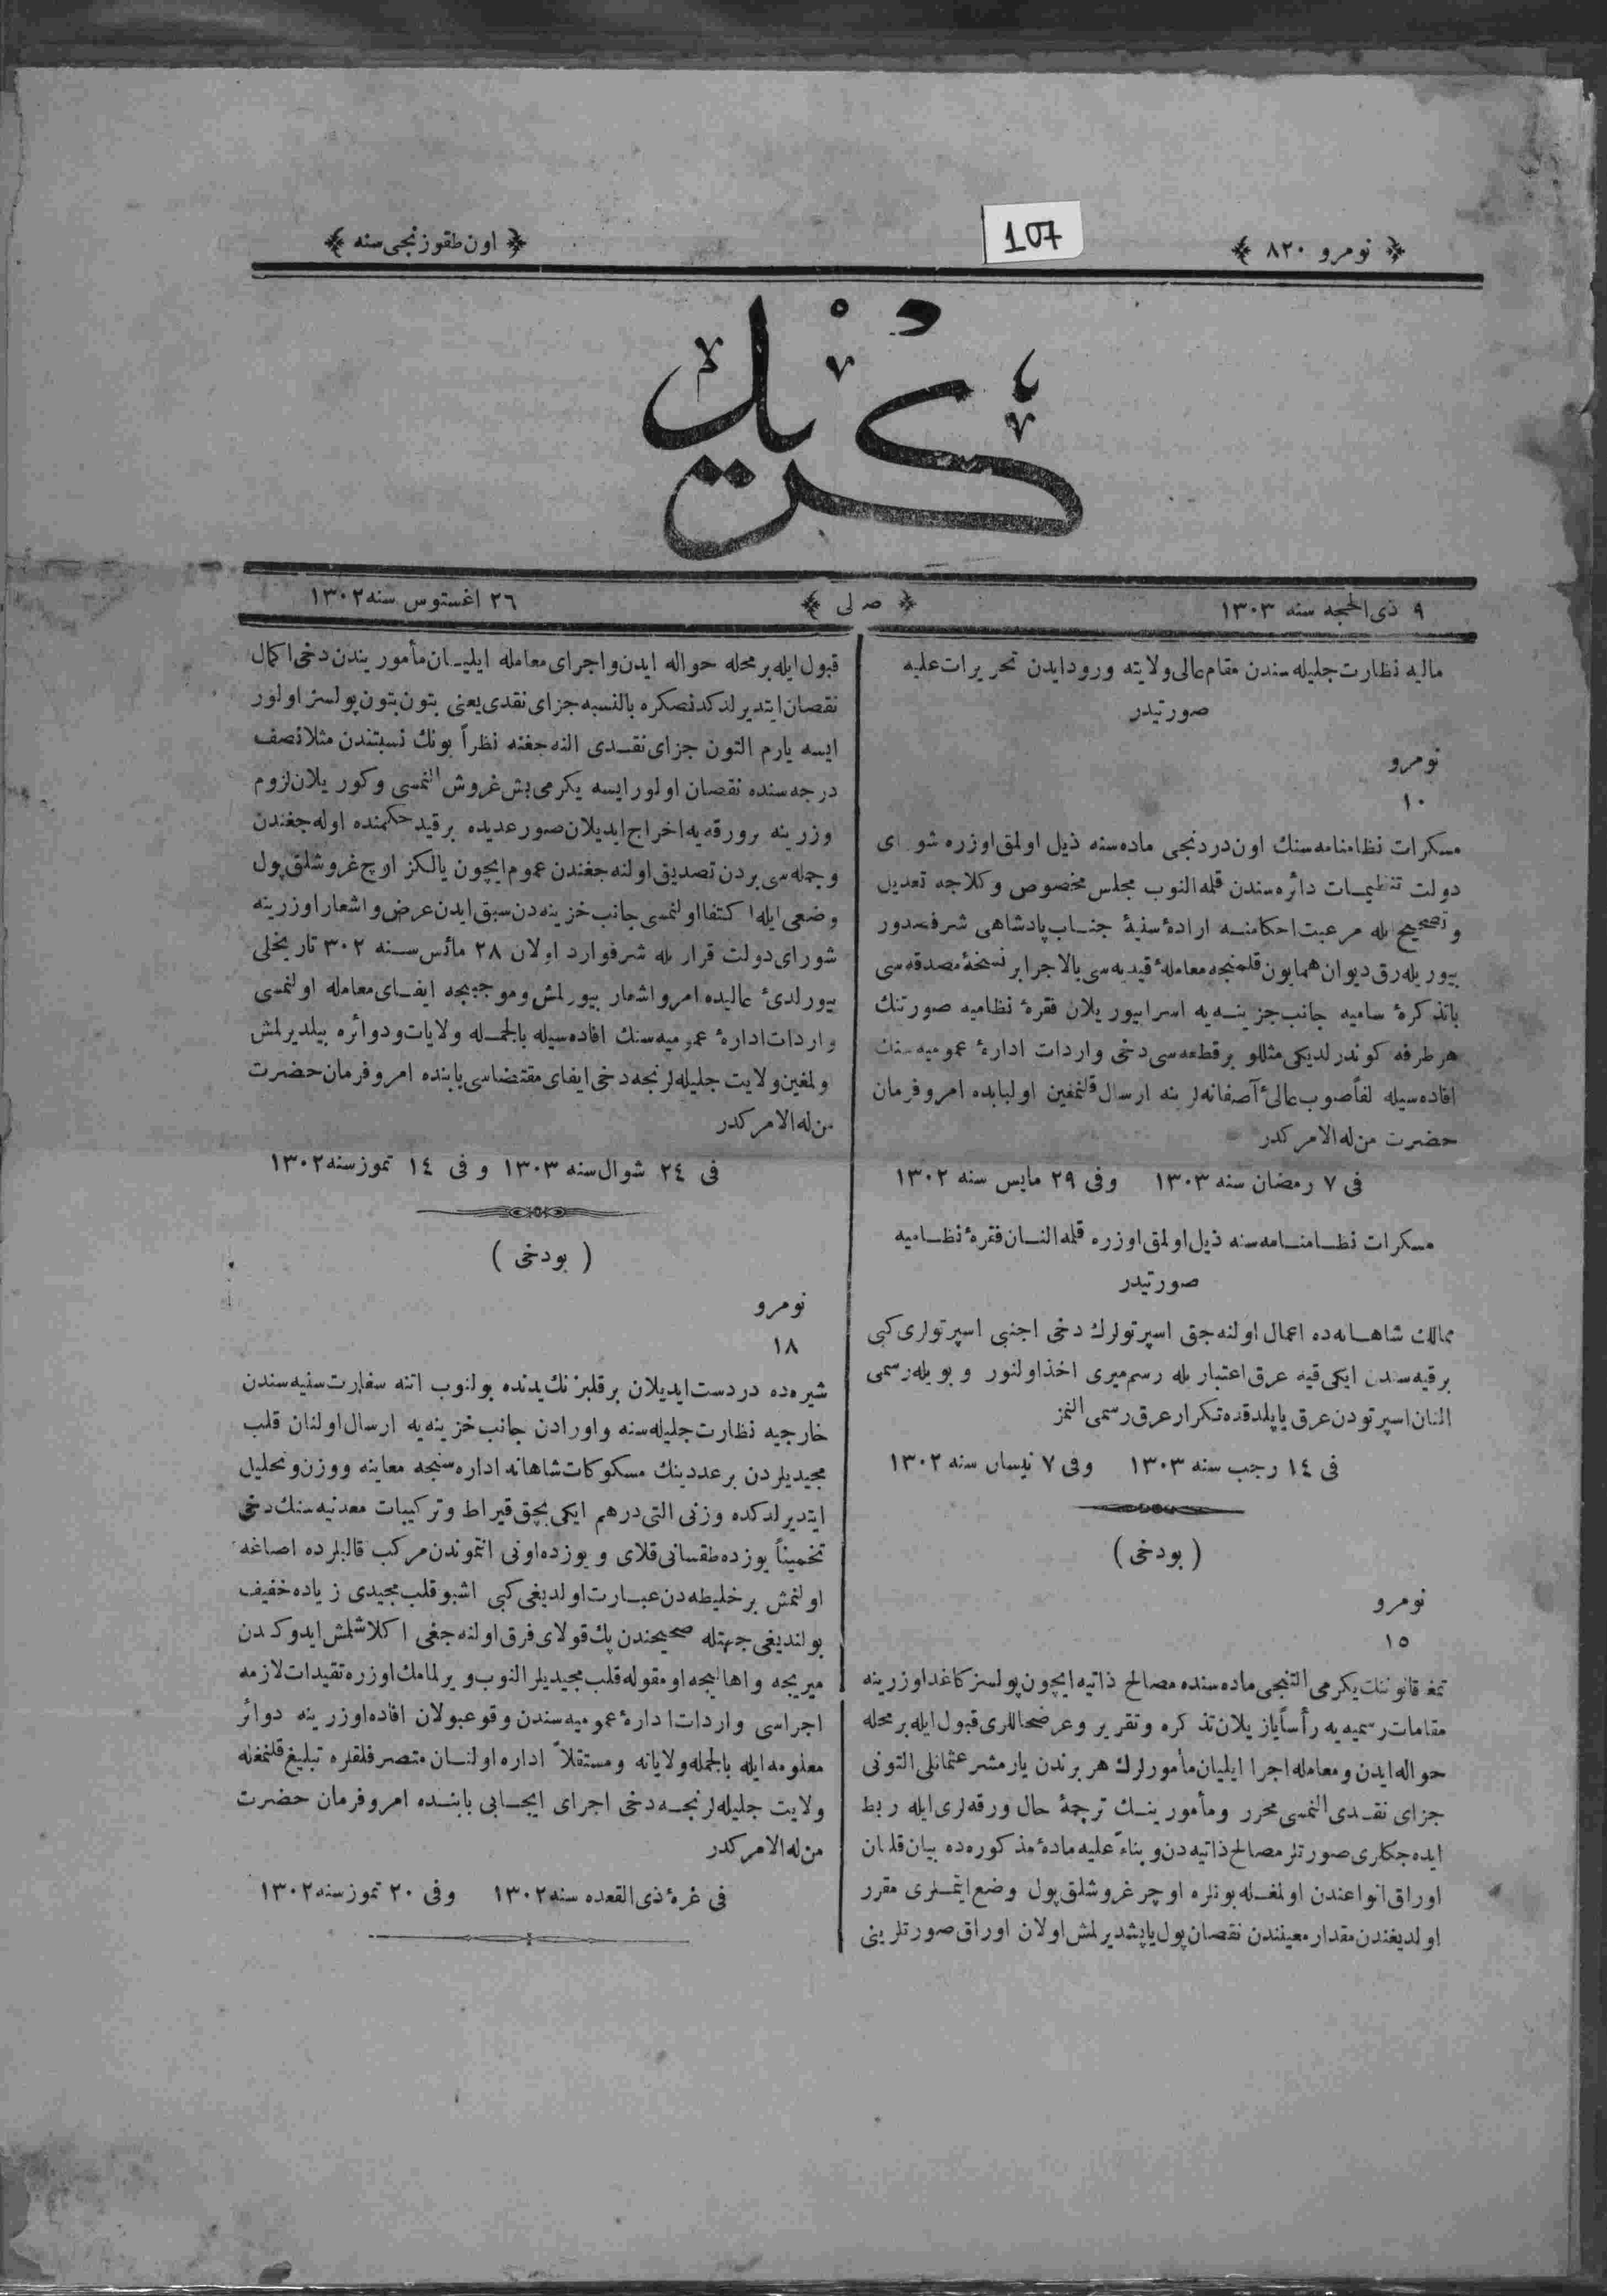 نومرو ٨٢٠
107
اون طقوزنجی سنه
كريد
٩ ذی الحجه سنه ١٣٠٣
صالی
٢٦ اغستوس سنه ١٣٠٢
مالیه نظارت جلیله سندن مقام عالی ولایته ورود ایدن تحریرات علیه
صورتیدر
نومرو
١٠
مسکرات نظامنامه سنك اون دردنجی ماده سنه ذیل اولمق اوزره شورای
دولت تنظیمات دائره سندن قلمه النوب مجلس مخصوص وکلاجه تعدیل
و تصحیح ایله مرعیت احکامنه ارادهٔ سنیهٔ جناب پادشاهی شرفصدور
بیوریله رق دیوان همایون قلمنجه معاملهٔ قیدیه سی بالاجرا بر نسخهٔ مصدقه سی
باتذکرهٔ سامیه جانب خزینه یه اسرا بیوریلان فقرهٔ نظامیه صورتنك
هر طرفه کوندرلدیکی مثللو بر قطعه سی دخی واردات ادارهٔ عمومیه سنك
افاده سیله لفاً صوب عالیٔ آصفانه لرینه ارسال قلنمغین اولبابده امر و فرمان
حضرت من له الامرکدر
فی ٧ رمضان سنه ١٣٠٣ وفی ٢٩ مایس سنه ١٣٠٢
مسکرات نظامنامه سنه ذیل اولمق اوزره قلمه النان فقرهٔ نظامیه
صورتیدر
ممالك شاهانه ده اعمال اولنه جق اسپرتولرك دخی اجنبی اسپرتولری کبی
برقیه سندن ایکی قیه عرق اعتباریله رسم میری اخذ اولنور و بویله رسمی
النان اسپرتودن عرق یاپلدقده تکرار عرق رسمی النمز
فی ١٤ رجب سنه ١٣٠٣ وفی ٧ نیسان سنه ١٣٠٢
( بودخی )
نومرو
١٥
تمغا قانوننك یکرمی التنجی ماده سنده مصالح ذاتیه ایچون پولسز کاغد اوزرینه
مقامات رسمیه یه رأساً یازیلان تذکره و تقریر و عرضحاللری قبول ایله بر محله
حواله ایدن و معامله اجرا ایلیان مأمورلرك هر برندن یارمشر عثمانلی التونی
جزای نقدی النمسی محرر و مأمورینك ترجمهٔ حال ورقه لری ایله ربط
ایده جکلری صورتلر مصالح ذاتیه دن و بناءً علیه مادهٔ مذکوره ده بیان قلنان
اوراق انواعندن اولمغله بونلره اوچر غروشلق پول وضع ایتملری مقرر
اولدیغندن مقدار معینندن نقصان پول یاپشدیرلمش اولان اوراق صورتلرینی
قبول ایله بر محله حواله ایدن و اجرای معامله ایلیان مأموریندن دخی اکمال
نقصان ایتدیرلدکدنصکره بالنسبه جزای نقدی یعنی بتون بتون پولسز اولور
ایسه یارم التون جزای نقدی النه جغنه نظراً بونك نسبتندن مثلا نصف
درجه سنده نقصان اولور ایسه یکرمی بش غروش النمسی و کوریلان لزوم
وزرینه برورقه یه اخراج ایدیلان صور عدیده بر قید حکمنده اوله جغندن
و جمله سی بردن تصدیق اولنه جغندن عموم ایچون یالکز اوچ غروشلق پول
وضعی ایله اکتفا اولنمسی جانب خزینه دن سبق ایدن عرض و اشعار اوزرینه
شورای دولت قراریله شرفوارد اولان ٢٨ مائس سنه ٣٠٢ تاریخلی
بیورلدیٔ عالیده امر و اشعار بیورلمش و موجبنجه ایفای معامله اولنمسی
واردات ادارهٔ عمومیه سنك افاده سیله بالجمله ولایات و دوائره بیلدیرلمش
ولمغین ولایت جلیله لرنجه دخی ایفای مقتضاسی بابنده امر و فرمان حضرت
من له الامرکدر
فی ٢٤ شوال سنه ١٣٠٣ و فی ١٤ تموز سنه ١٣٠٢
( بودخی )
نومرو
١٨
شیره ده دردست ایدیلان بر قلبزنك یدنده بولنوب اتنه سفارت سنیه سندن
خارجیه نظارت جلیله سنه و اورادن جانب خزینه یه ارسال اولنان قلب
مجیدیلردن بر عددینك مسکوکات شاهانه اداره سنجه معاینه و وزن و تحلیل
ایتدیرلدکده وزنی التی درهم ایکی بچق قیراط و ترکیبات معدنیه سنك دخی
تخمیناً یوزده طقسانی قلای و یوزده اونی انتموندن مرکب قالبلرده اصاغه
اولنمش بر خلیطه دن عبارت اولدیغی کبی اشبو قلب مجیدی زیاده خفیف
بولندیغی جهتله صحیحندن پك قولای فرق اولنه جغی اکلاشلمش ایدوکدن
میریجه و اهالیجه او مقوله قلب مجیدیلر النوب ویرلمامك اوزره تقیدات لازمه
اجراسی واردات ادارهٔ عمومیه سندن وقوعبولان افاده اوزرینه دوائر
معلومه ایله بالجمله ولایاته و مستقلاً اداره اولنان متصرفلقلره تبلیغ قلنمغله
ولایت جلیله لرنجه دخی اجرای ایجابی بابنده امر و فرمان حضرت
من له الامرکدر
فی غرهٔ ذی القعده سنه ١٣٠٢ وفی ٢٠ تموز سنه ١٣٠٢